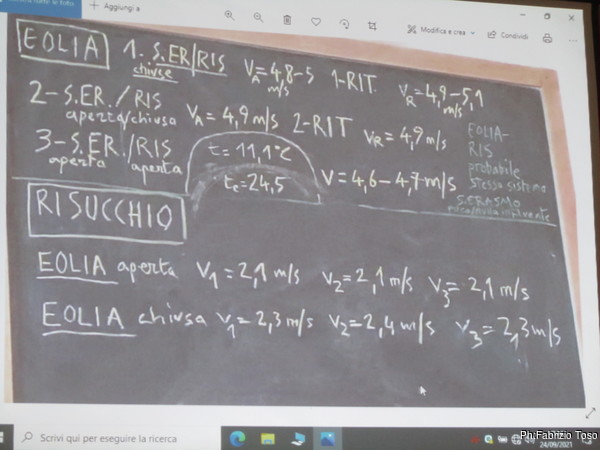 Aggiungi a
Modifica e crea
Condividi
EOLIA
1. S.ER/RIS chiuse VA=4,8-5 m/s 1-RIT. VR=4,9-5,1 m/s
2-S.ER./RIS aperta/chiusa VA=4,9 m/s 2-RIT VR=4,9 m/s
3-S.ER./RIS aperta aperta t=11,1°C V=4,6-4,7 m/s
te=24,5
EOLIA-
RIS
probabile
stesso sistema
S.ERASMO
RISUCCHIO
EOLIA aperta V1=2,1 m/s V2=2,1 m/s V3=2,1 m/s
EOLIA chiusa V1=2,3 m/s V2=2,4 m/s V3=2,3 m/s
Scrivi qui per eseguire la ricerca
Ph:Fabrizio Toso
24/09/2021